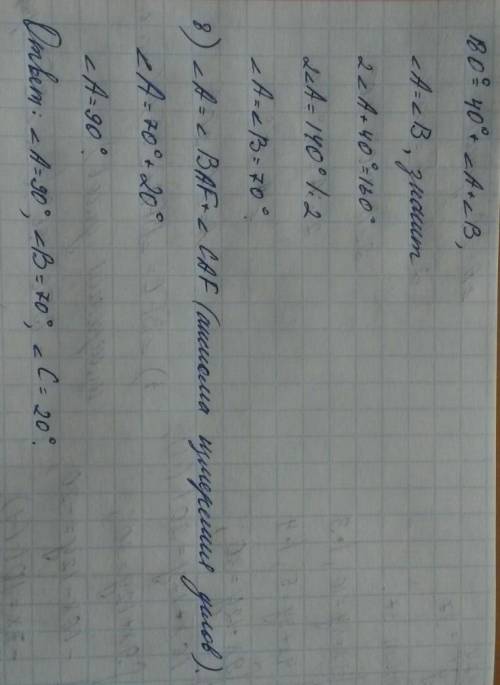 180° = 40° + ∠A + ∠B,
∠A = ∠B, значит
2∠A + 40° = 180°
2∠A = 140° |: 2
∠A = ∠B = 70°.
8) ∠A = ∠BAF + ∠CAF (аксиома измерения углов).
∠A = 70° + 20°
∠A = 90°.
Ответ: ∠A = 90°, ∠B = 70°, ∠C = 20°.